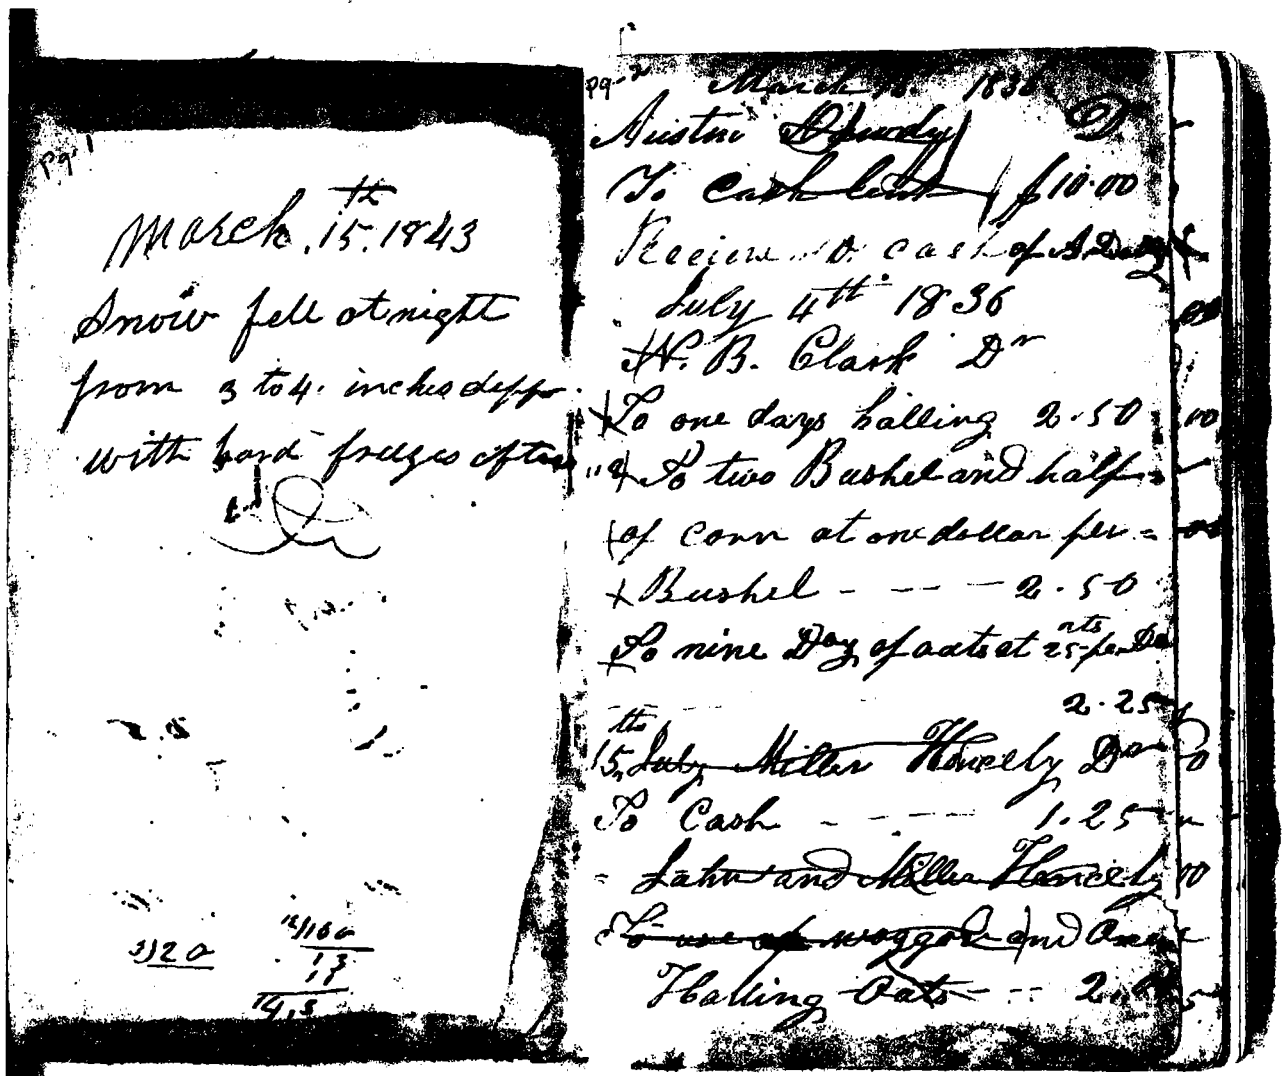 Pg-1
March. 15th. 1843
Snow fell at night
from 3 to 4. inches depp.
with hard freezes after
3)20
14.3
Pg-2
March 1836
Austin Dowdy D
To Cash lent $10.00
Recieve cash of A. Dowdy
July 4th 1836
W. B. Clark Dr
To one days halling 2.50
To two Bushel and half
of corn at one dollar per
Bushel - - - - 2.50
To nine Doz of oats at 25 cts per Do
2.25
15th July Miller Hencely Dr
To Cash - - - - 1.25
John and Miller Hencely
To use of waggon and Oxen
Halling Oats - - 2.